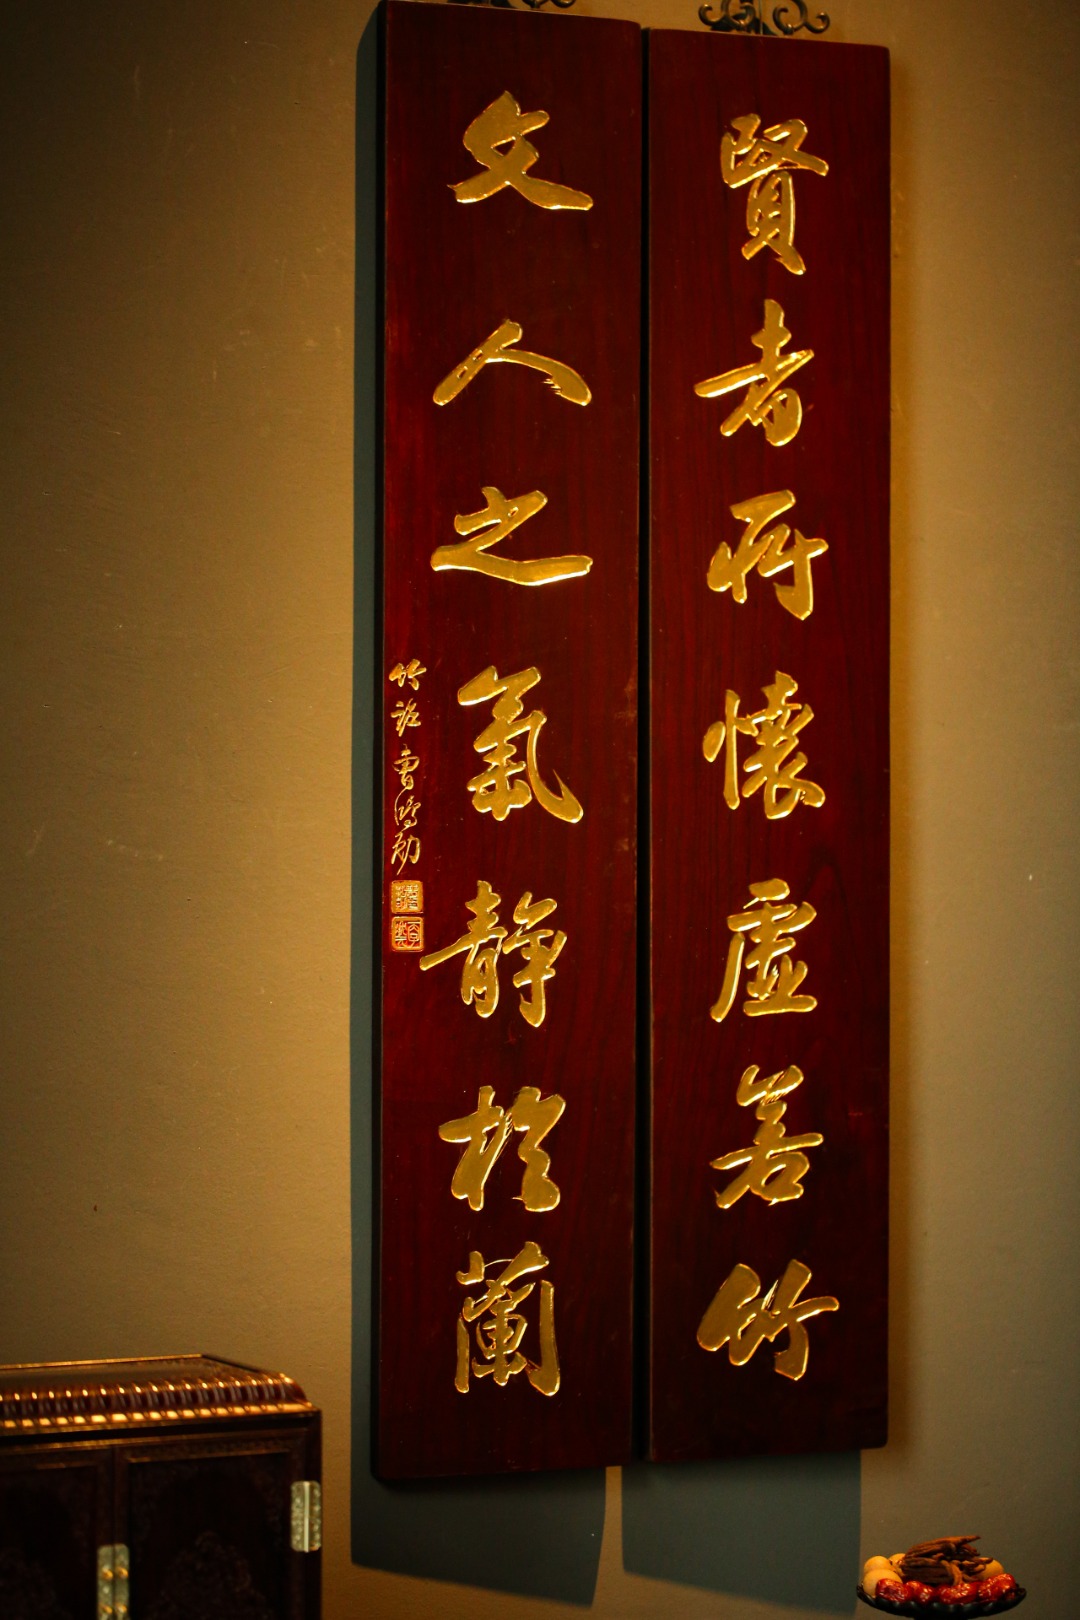 賢者所懷虛若竹
文人之氣靜於蘭
竹銘曹鴻勛